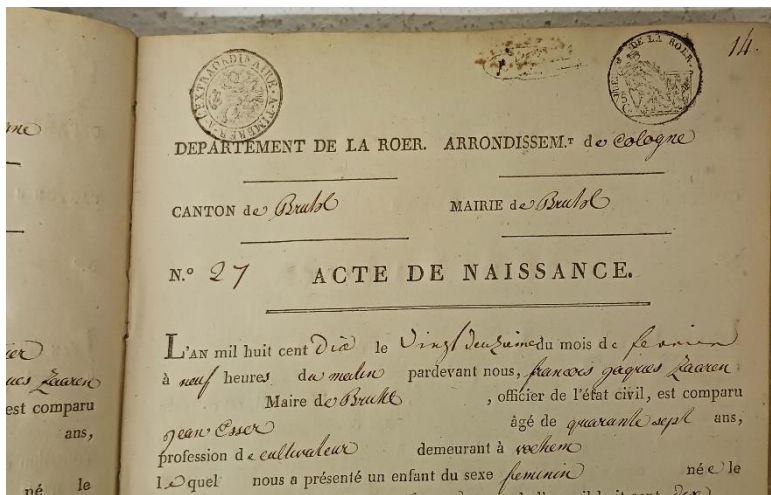 14.
EXTRAORDINAIRE · A TIMBRER A L'
DE LA ROER.
DEPARTEMENT DE LA ROER. ARRONDISSEM.T de Cologne
CANTON de Bruhl MAIRIE de Bruhl
N.º 27 ACTE DE NAISSANCE.
L'AN mil huit cent Dix le Vingt deuxieme du mois de fevrier
à neuf heures du matin pardevant nous, francois jaques Zaaren
Maire de Bruhl , officier de l'état civil, est comparu
jean Esser âgé de quarante sept ans,
profession de cultivateur demeurant à vochem
Lequel nous a présenté un enfant du sexe feminin née le
ques Zaaren
est comparu
ans,
né le